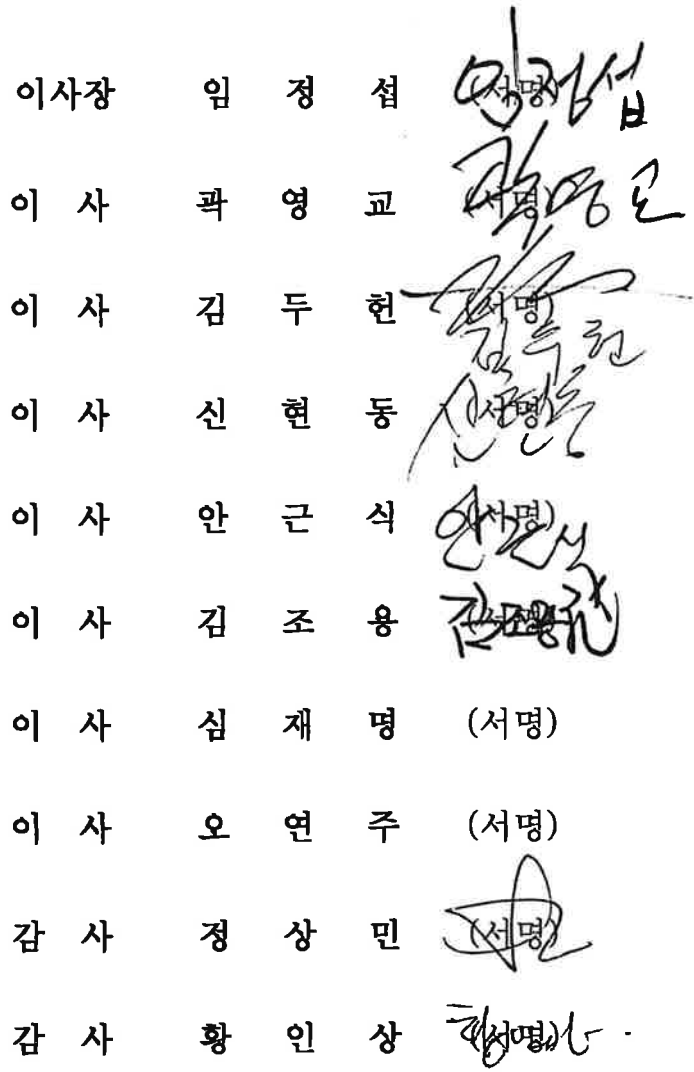 이사장 임 정 섭 (서명) 임정섭
이 사 곽 영 교 (서명) 곽영교
이 사 김 두 헌 (서명) 김두헌
이 사 신 현 동 (서명) 신현동
이 사 안 근 식 (서명) 안근식
이 사 김 조 용 (서명)
이 사 심 재 명 (서명)
이 사 오 연 주 (서명)
감 사 정 상 민 (서명)
감 사 황 인 상 (서명)